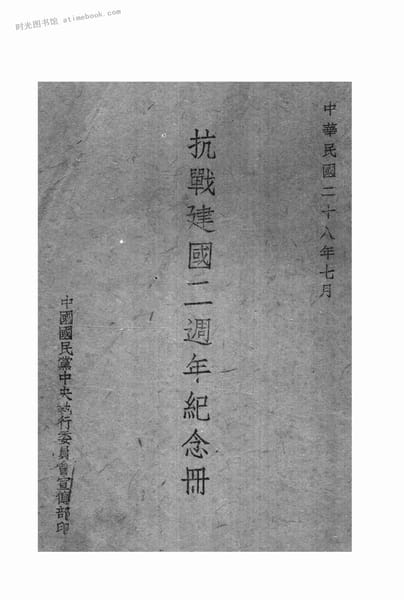 时光图书馆 atimebook.com
中華民國二十八年七月
抗戰建國二週年紀念冊
中國國民黨中央執行委員會宣傳部印